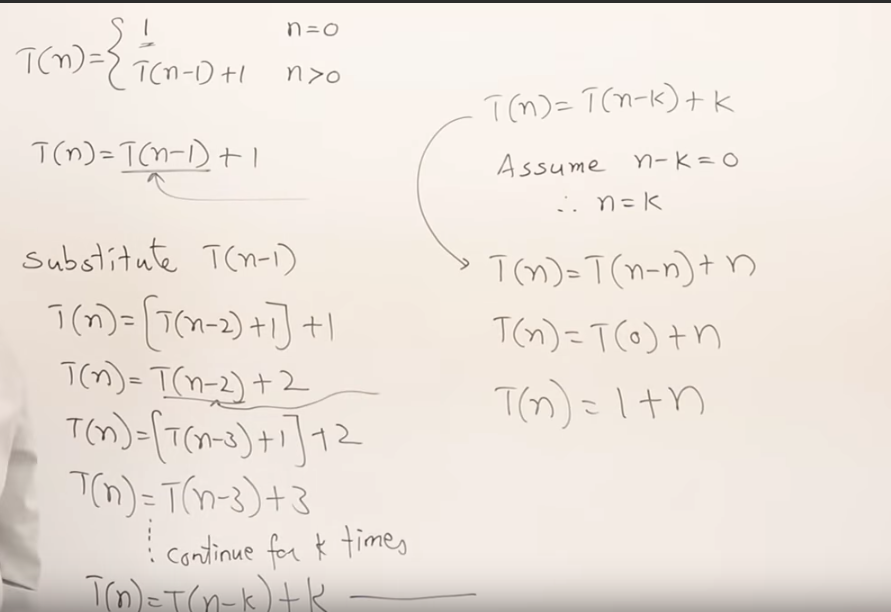 T(n)={ 1 n=0
T(n-1)+1 n>0
T(n)=T(n-1)+1
substitute T(n-1)
T(n)=[T(n-2)+1]+1
T(n)=T(n-2)+2
T(n)=[T(n-3)+1]+2
T(n)=T(n-3)+3
⋮ continue for k times
T(n)=T(n-k)+k
T(n)=T(n-k)+k
Assume n-k=0
∴ n=k
T(n)=T(n-n)+n
T(n)=T(0)+n
T(n)=1+n